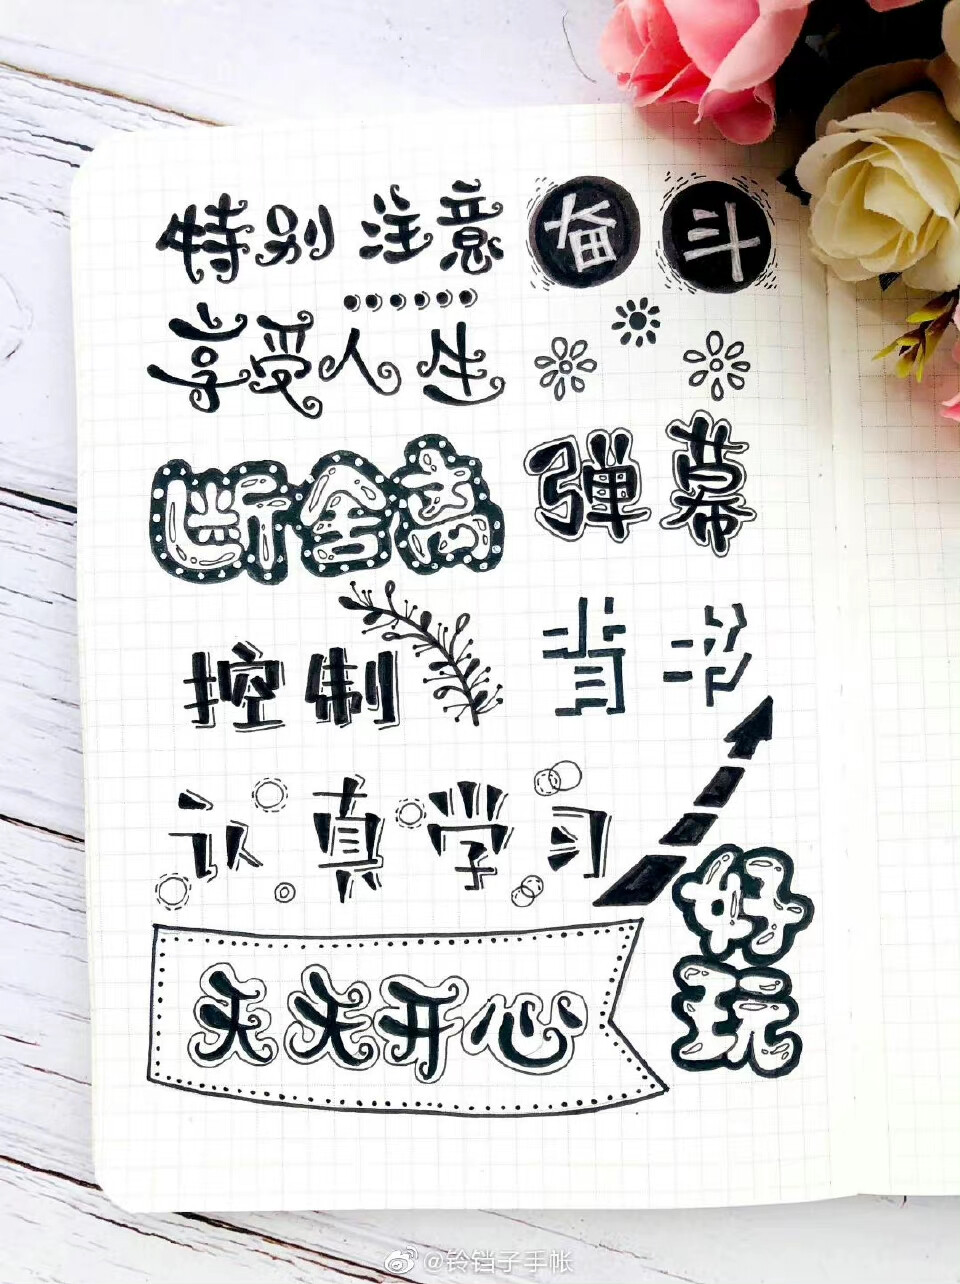 特别 注意 奋 斗
享受人生
断舍离 弹幕
控制 背书
认真学习
好玩
天天开心
@铃铛子手帐